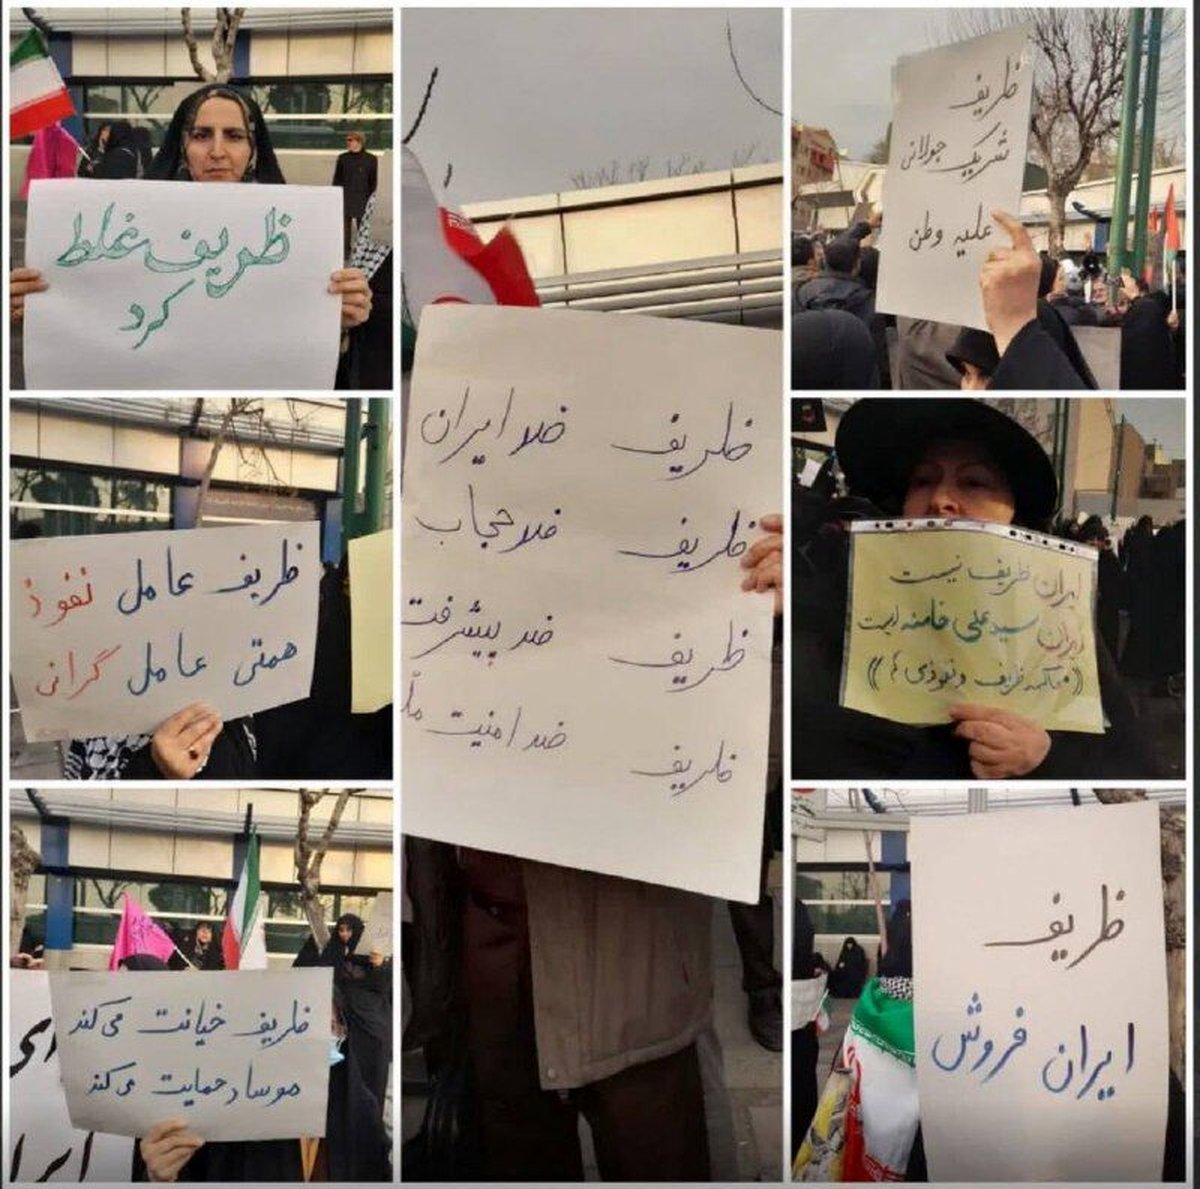 ظریف غلط
کرد
ظریف
شریک جولانی
علیه وطن
ظریف ضد ایران
ظریف ضد حجاب
ظریف ضد پیشرفت
ظریف ضد امنیت
ظریف عامل نفوذ
همتی عامل گرانی
ایران ظریف نیست
ایران سید علی خامنه ایست
((محاکمه ظریف و نفوذی ها))
ظریف خیانت می‌کند
موساد حمایت می‌کند
ظریف
ایران فروش